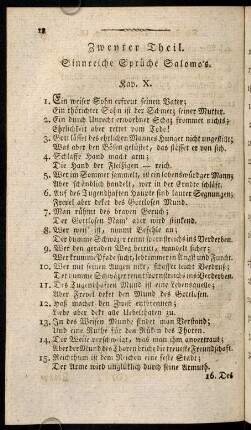 12
Zweyter Theil.
Sinnreiche Sprüche Salomo's.
Kap. X.
1. Ein weiser Sohn erfreut seinen Vater;
Ein thörichter Sohn ist der Schmerz seiner Mutter.
2. Ein durch Unrecht erworbner Schaz frommet nichts;
Ehrlichkeit aber rettet vom Tode!
3. Gott lässet des ehrlichen Mannes Hunger nicht ungestillt;
Was aber den Bösen gelüstet, das stösset er von sich.
4. Schlaffe Hand macht arm;
Die Hand der Fleißigen — reich.
5. Wer im Sommer sammelt, ist ein lobenswürdger Mann;
Aber schändlich handelt, wer in der Erndte schläft.
6. Auf des Tugendhaften Haupte sind lauter Segnungen;
Frevel aber deket des Gottlosen Mund.
7. Man rühmt des braven Geruch;
Der Gottlosen Nam' aber wird stinkend.
8. Wer weis' ist, nimmt Befehle an;
Der dumme Schwazer rennt in sein
9. Wer den geraden Weg betritt, wandelt sicher;
Wer krumme Pfade sucht, lebt immer in Angst und Furcht.
10. Wer mit seinen Augen nikt, schaffet leicht Verdruß;
Der dumme Schwäzer rennt in Verderben.
11. Des Tugendhaften Mund ist eine Lebensquelle;
Aber Frevel deket den Mund des Gottlosen.
12. Haß machet den Zwist entbrennen;
Liebe aber dekt alle Uebelthaten zu.
13. In des Weisen Munde findet man Verstand;
Und eine Ruthe für den Rüken des Thoren.
14. Der Weise verschweigt, was man ihm anvertraut;
Aber der Mund des Thoren bricht die Freundschaft.
15. Reichthum ist dem Reichen eine feste Stadt;
Der Arme wird unglüklich durch seine Armuth.
16. Des